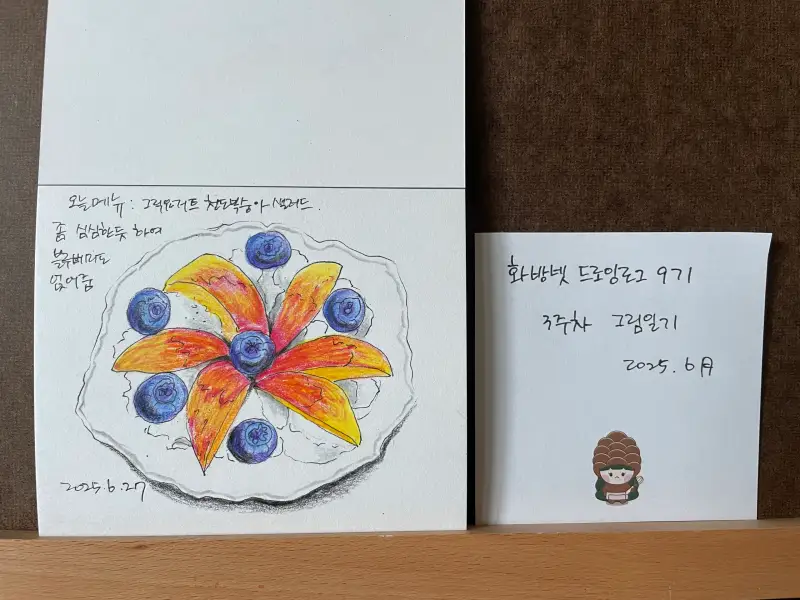 오늘메뉴 : 그릭요거트 천도복숭아 샐러드.
좀 심심한듯 하여
블루베리도
얹어줌
2025.6.27
화방넷 드로잉로그 9기
3주차 그림일기
2025. 6月